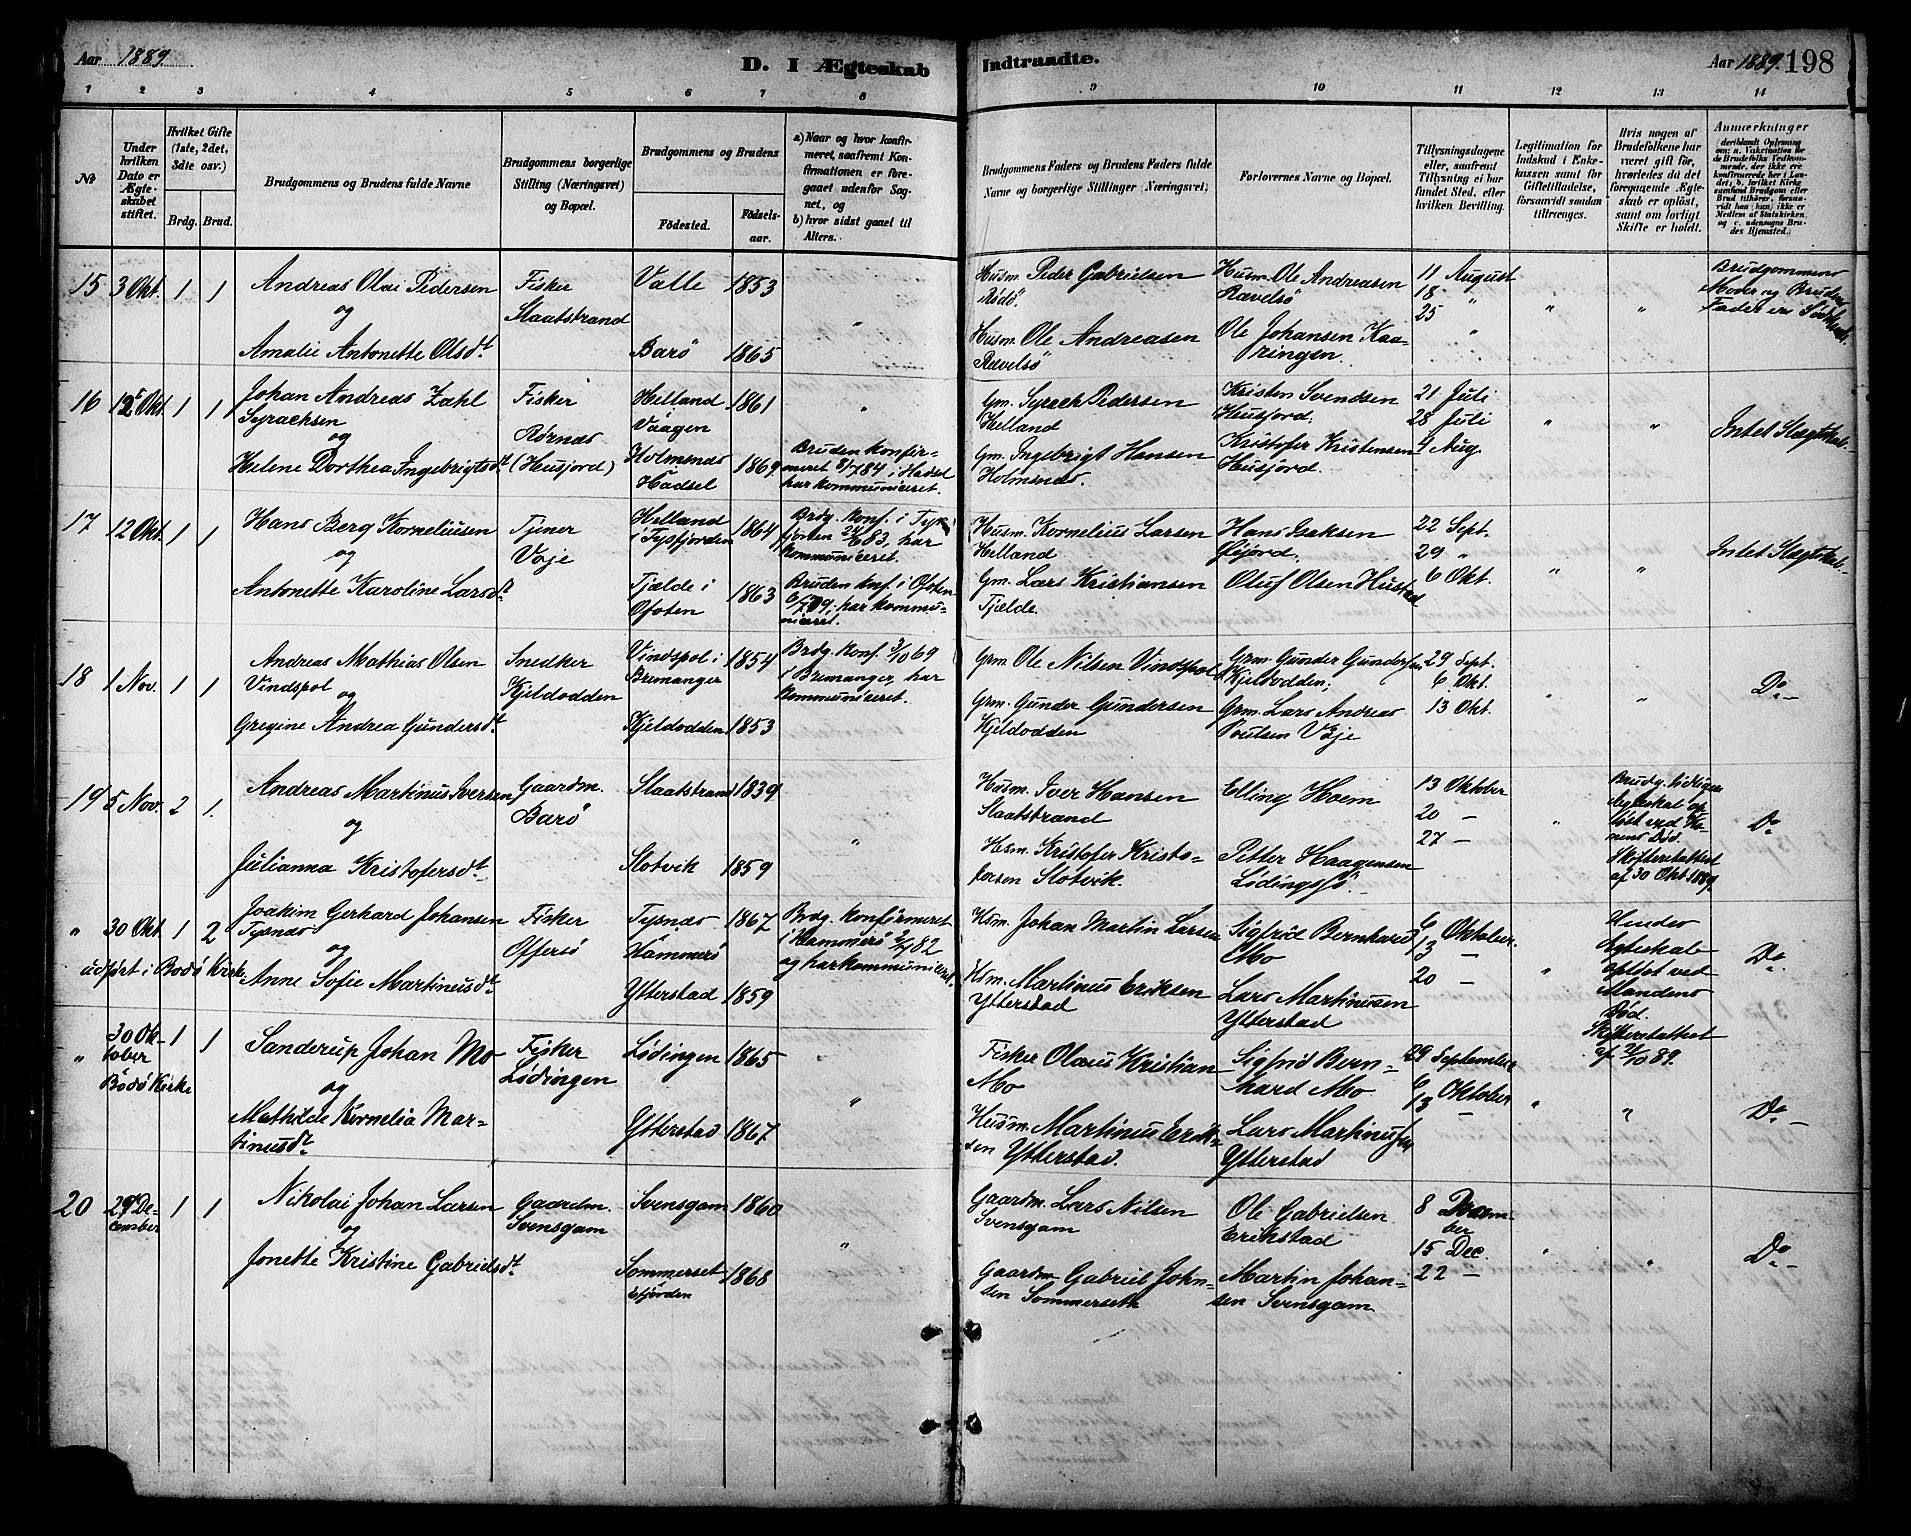 Aar 1889.
D. I Ægteskab
Indtraadte.
Aar 1889. 198
1 2 3 4 5 6 7 8 9 10 11 12 13 14
No
Under hvilken Dato er Ægteskabet stiftet.
Hvilket Gifte (1ste, 2det, 3die osv.)
Brdg. Brud.
Brudgommens og Brudens fulde Navne
Brudgommens borgerlige Stilling (Næringsvei) og Bopæl.
Brudgommens og Brudens
Födested.
Födsels-aar.
a) Naar og hvor konfirmeret, saafremt Konfirmationen er foregaaet udenfor Sognet, og
b) hvor sidst gaaet til Alters.
Brudgommens Faders og Brudens Faders fulde Navne og borgerlige Stillinger (Næringsvei)
Forlovernes Navne og Bopæl.
Tillysningsdagene eller, saafremt Tillysning ei har fundet Sted, efter hvilken Bevilling.
Legitimation for Indskud i Enkekassen samt for Giftetilladelse, forsaavidt saadan tiltrænges.
Hvis nogen af Brudefolkene har været gift för, hvorledes da det foregaaende Ægteskab er oplöst, samt om lovligt Skifte er holdt.
Anmærkninger
15 3 Okt. 1 1
Andreas Olai Pedersen
og
Amalie Antonette Olsdt.
Fisker
Slaatstrand
Valle 1853
Barø 1865
"
Husm. Peder Gabrielsen
Rødø.
Husm. Ole Andreasen
Rævelsö
Husm. Ole Andreasen
Rævelsö
Ole Johansen Kaaringen.
11 August
18 "
25 "
" "
Brudgommens
Moder og Brudens
Fader er
16 12 Okt. 1 1
Johan Andreas Zahl
Syrachsen
og
Helene Dorthea Ingebrigtsdt.
Fisker
Rørnæs
(Husjord)
Helland
Vaagen 1861
Holmsnæs
Hadsel 1869
"
Bruden konfirmeret 8/7 84 i Hadsel
har kommuniceret.
Gm. Syrach Pedersen
Helland
Gm. Ingebrigt Hansen
Holmsnæs.
Kristen Svendsen
Husjord.
Kristofer Kristensen
Husjord.
21 Juli
28 Juli
4 Aug
" "
Intet Slægtskab.
17 12 Okt. 1 1
Hans Berg Korneliusen
og
Antonette Karoline Larsdt.
Tjener
Voje
Helland
i Tysfjorden 1864
Tjælde i
Ofoten 1863
Brdg. konf. i Tysfjorden 24/6 83, har
kommuniceret.
Bruden konf. i Ofoten
6/7 79, har kommuniceret.
Husm. Kornelius Larsen
Helland.
Gm. Lars Kristiansen
Tjælde.
Hans Isaksen
Efjord.
Oluf Olsen Hustad
22 Sept.
29 "
6 Okt.
" "
Intet Slægtskab.
18 1 Nov. 1 1
Andreas Mathias Olsen
Vindspol
og
Gregine Andrea Gundersdt.
Snedker
Kjeldodden
Vindspol i
Bremanger 1854
Kjeldodden 1853
Brdg. konf. 3/10 69
i Bremanger, har
kommuniceret.
Grm. Ole Nilsen Vindspol
Grm. Gunder Gundersen
Kjeldodden
Grm. Gunder Gundersen
Kjeldodden;
Grm. Lars Andreas
Poulsen Voje
29 Sept.
6 Okt.
13 Okt.
" "
Do –
19 5 Nov. 2 1.
Andreas Martinus Iversen
og
Julianna Kristofersdt.
Gaardm.
Barö
Slaatstrand 1839
Slotvik 1859
"
Husm. Iver Hansen
Slaatstrand
Hsm. Kristofer Kristofersen Slotvik.
Elling Hoem
Petter Haagensen
Lödingsjö.
13 Oktober
20 –
27 –
"
Brudg. tidligere
Ægteskab opløst ved Konens Död.
Skifteretsattest
af 30 Okt 1889.
Do
" 30 Okt. 1 2
udført i Bodø Kirke
Joakim Gerhard Johansen
Tysnæs
og
Anne Sofie Martinusdt.
Fisker
Offersö
Tysnæs
Hammerö 1867
Ytterstad 1859
Brdg. konfirmeret
i Hammerö 2/7 82
og har kommuniceret.
Hsm. Johan Martin Larsen
Hsm. Martinus Eriksen
Ytterstad
Sigfrid Bernhard
Mo
Lars Martinusen
Ytterstad
6 Oktober.
13 –
20 –
"
Hendes
Ægteskab
opløst ved
Mandens
Död.
Skifteretsattest
af 2/10 89.
Do
" 30 Oktober
Bodö Kirke 1 1
Sanderup Johan Mo
og
Mathilde Kornelia Martinusdt.
Fisker
Lødingen
Lødingen 1865
Ytterstad 1867
"
Fisker Olaus Kristian
Mo
Husm. Martinus Eriksen Ytterstad.
Sigfrid Bernhard Mo
Lars Martinusen
Ytterstad
29 September
6 Oktober
13 –
" "
Do –
20 29 December 1 1
Nikolai Johan Larsen
og
Jonette Kristine Gabrielsdt.
Gaardm.
Svensgam
Svensgam 1860
Sommerset
Efjorden 1868
"
Gaardm. Lars Nilsen
Svensgam
Gaardm. Gabriel Johnsen Sommerseth
Ole Gabrielsen
Erikstad
Martin Johansen Svensgam
8 December
15 Dec.
22 –
" "
Do –